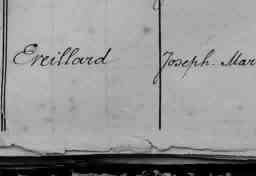 Ereillard Joseph. Mar